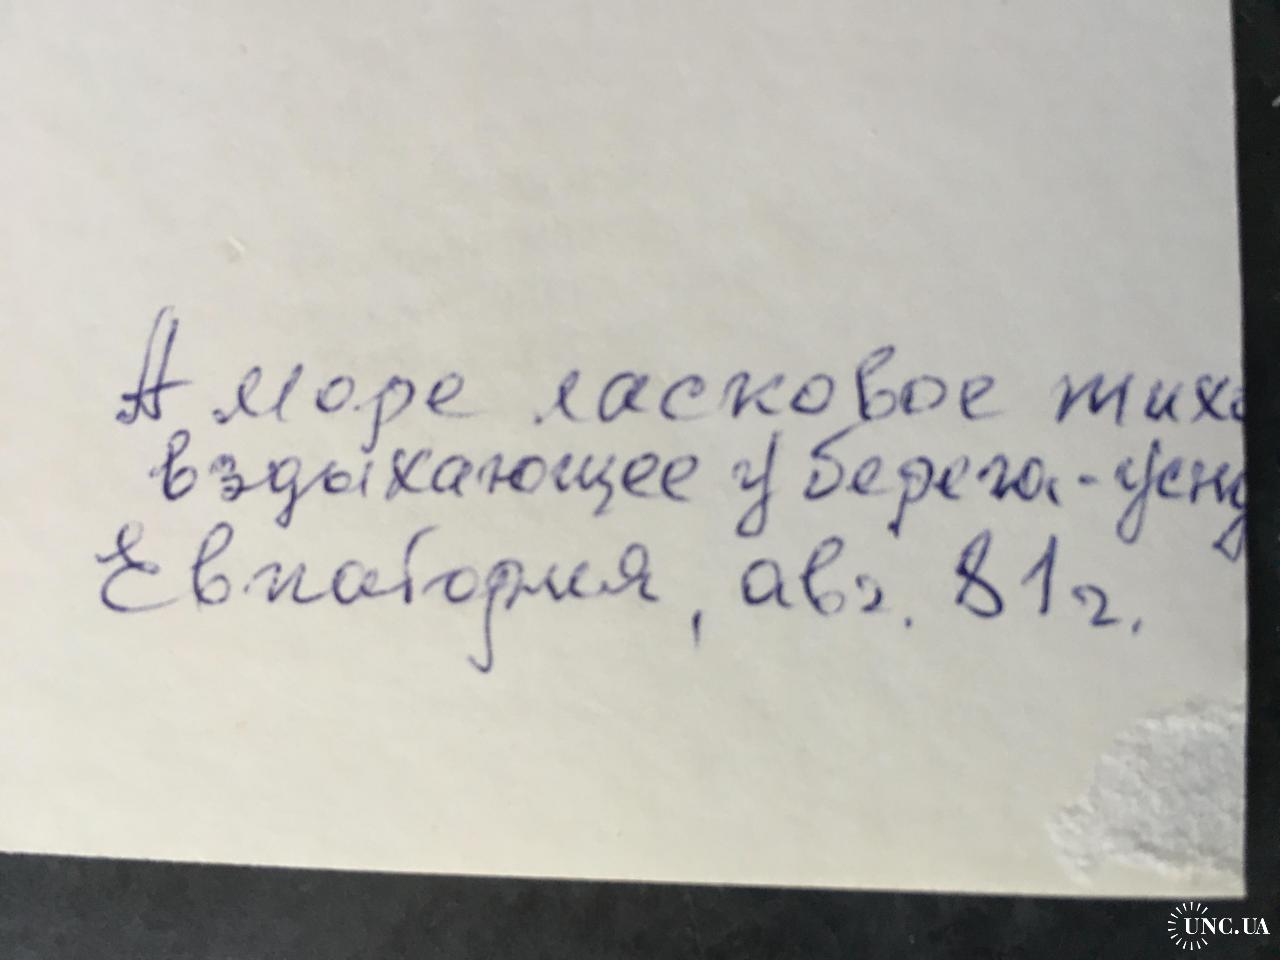 А море ласковое тихо
вздыхающее у берега - усну
Евпатория, авг. 81 г.
UNC.UA